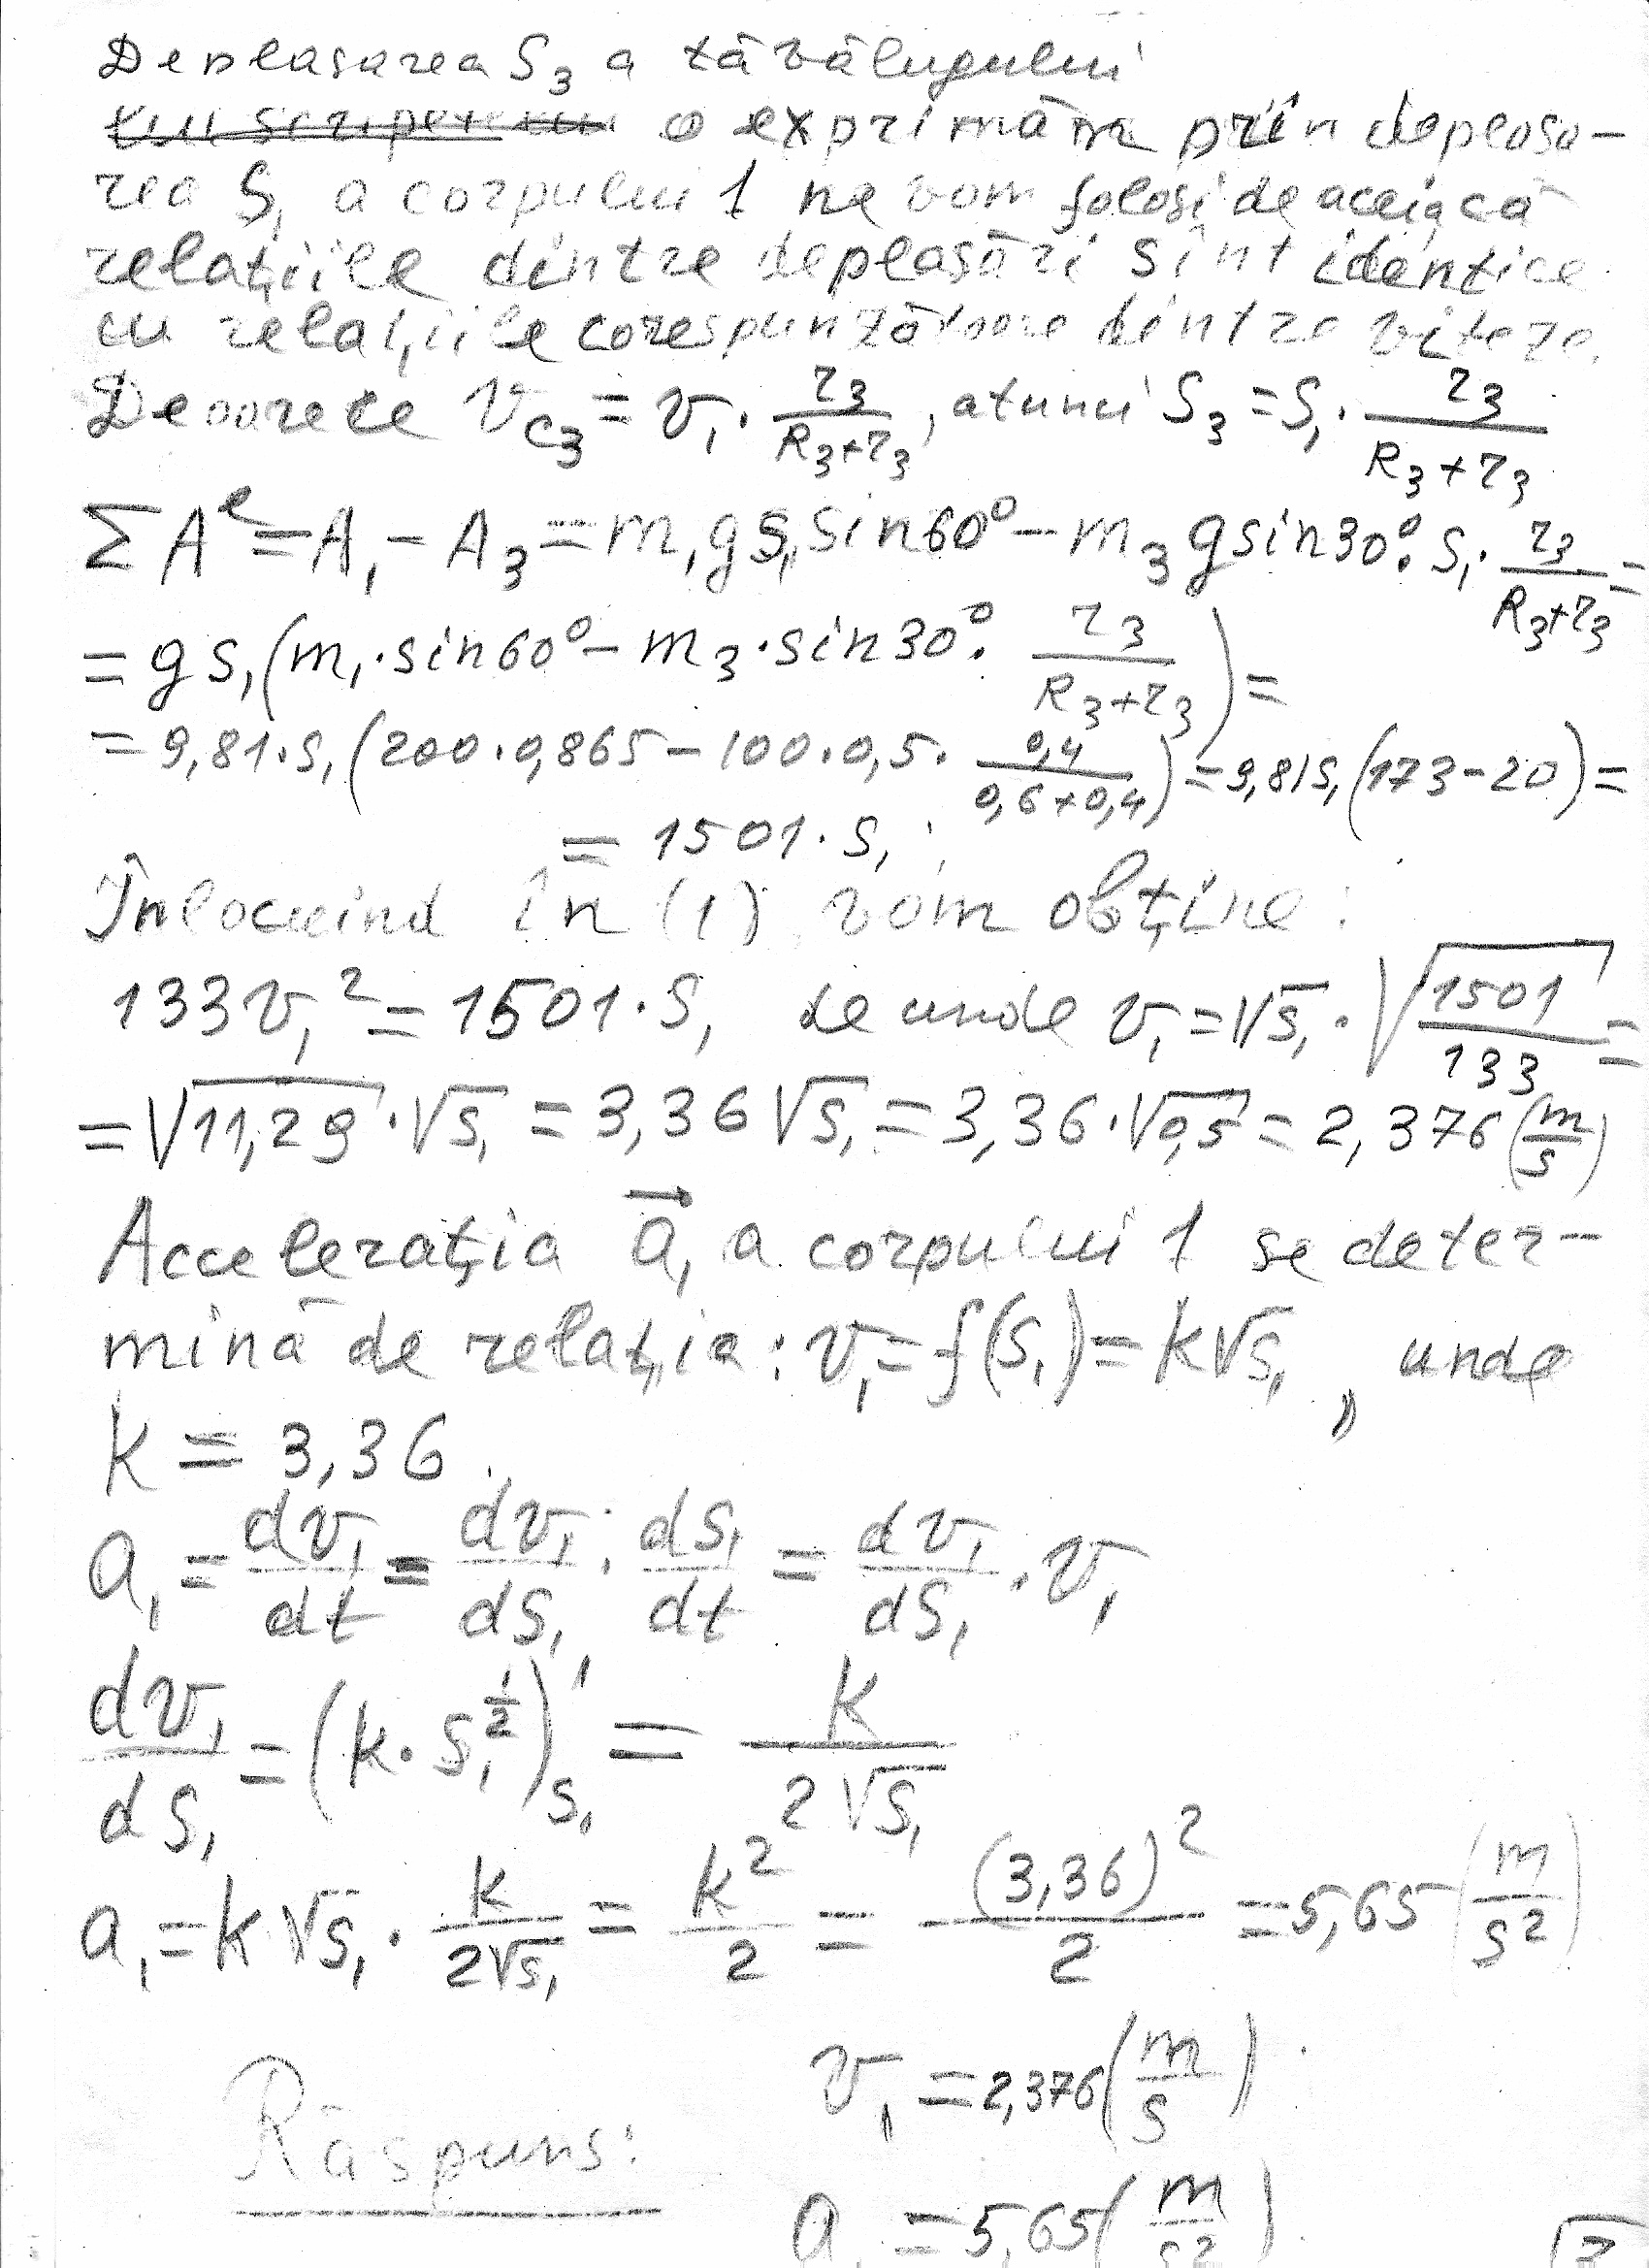 Deplasarea S₃ a tăvălugului
lui scripetelui o exprimăm prin deplasa-
rea S₁ a corpului 1 ne vom folosi de aceia că
relațiile dintre deplasări sînt identice
cu relațiile corespunzătoare dintre viteze.
Deoarece v_C₃ = v₁ · r₃/(R₃+r₃), atunci S₃ = S₁ · r₃/(R₃+r₃)
ΣAᵉ = A₁ - A₃ = m₁gs₁sin60° - m₃gsin30° · S₁ · r₃/(R₃+r₃) =
= gs₁(m₁·sin60° - m₃·sin30° · r₃/(R₃+r₃)) =
= 9,81·s₁(200·0,865 - 100·0,5 · 0,4/(0,6+0,4)) = 9,81s₁(173-20) =
= 1501·s₁;
Înlocuind în (1) vom obține:
133v₁² = 1501·S₁ de unde v₁ = √s₁ · √(1501/133) =
= √11,29 · √s₁ = 3,36√s₁ = 3,36·√0,5 = 2,376 (m/s)
Accelerația a⃗₁ a corpului 1 se deter-
mină de relația: v₁ = f(s₁) = k√s₁, unde
k = 3,36.
a₁ = dv₁/dt = dv₁/ds₁ · ds₁/dt = dv₁/ds₁ · v₁
dv₁/ds₁ = (k·s₁^(1/2))'_s₁ = k/(2√s₁)
a₁ = k√s₁ · k/(2√s₁) = k²/2 = (3,36)²/2 = 5,65 (m/s²)
v₁ = 2,376 (m/s)
Răspuns:
a₁ = 5,65 (m/s²)